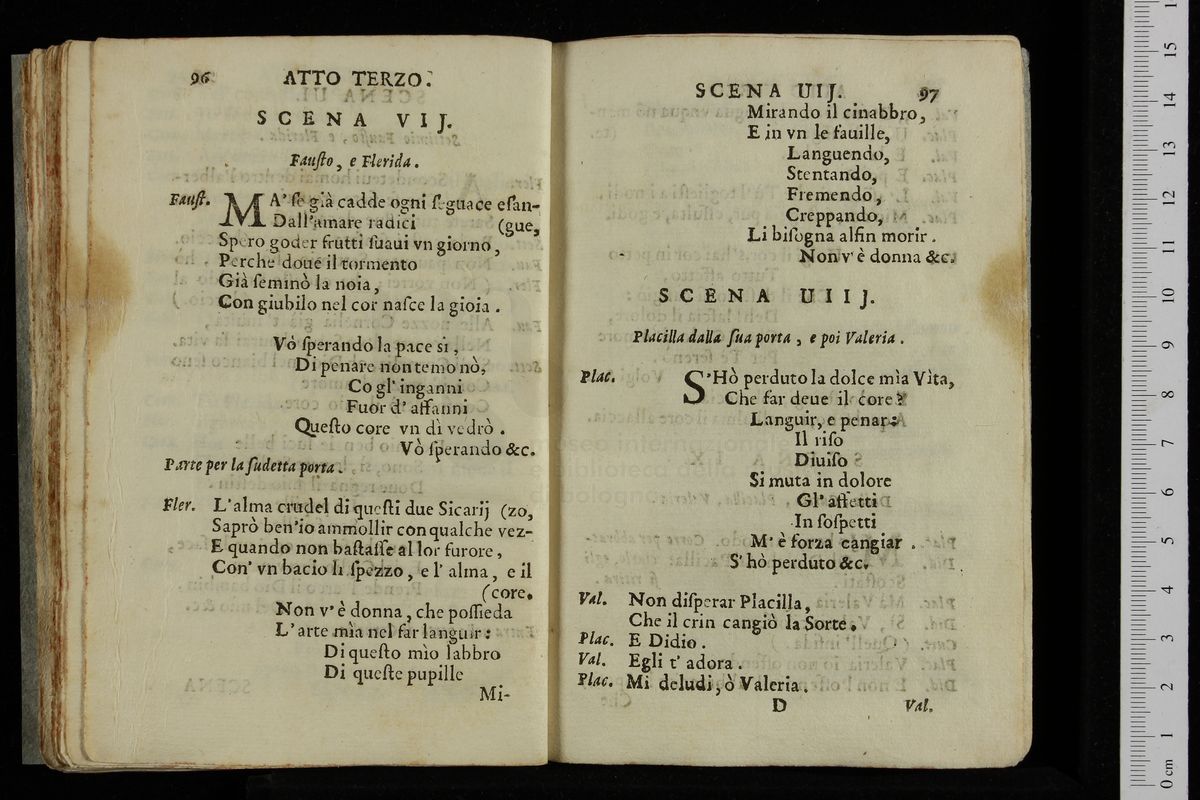 96 ATTO TERZO.
SCENA VIJ.
Fauſto, e Flerida.
Fauſt. MA' ſe già cadde ogni ſeguace eſan-
Dall'amare radici (gue,
Spero goder frutti ſuaui vn giorno,
Perche doue il tormento
Già ſeminò la noia,
Con giubilo nel cor naſce la gioia.
Vò ſperando la pace sì,
Di penare non temo nò,
Co gl' inganni
Fuor d' affanni
Queſto core vn dì vedrò.
Vò ſperando &c.
Parte per la ſudetta porta.
Fler. L'alma crudel di queſti due Sicarij (zo,
Saprò ben'io ammollir con qualche vez-
E quando non baſtaſſe al lor furore,
Con' vn bacio li ſpezzo, e l' alma, e il
(core.
Non v' è donna, che poſſieda
L' arte mìa nel far languir:
Di queſto mìo labbro
Di queſte pupille
Mi-
SCENA UIJ. 97
Mirando il cinabbro,
E in vn le fauille,
Languendo,
Stentando,
Fremendo,
Creppando,
Li biſogna alfin morir.
Non v' è donna &c.
SCENA UIIJ.
Placilla dalla ſua porta, e poi Valeria.
Plac. S'Hò perduto la dolce mìa Vìta,
Che far deue il core?
Languir, e penar:
Il riſo
Diuiſo
Si muta in dolore
Gl' affetti
In ſoſpetti
M' è forza cangiar.
S' hò perduto &c.
Val. Non diſperar Placilla,
Che il crin cangiò la Sorte.
Plac. E Didio.
Val. Egli t' adora.
Plac. Mi deludi, ò Valeria.
D Val.